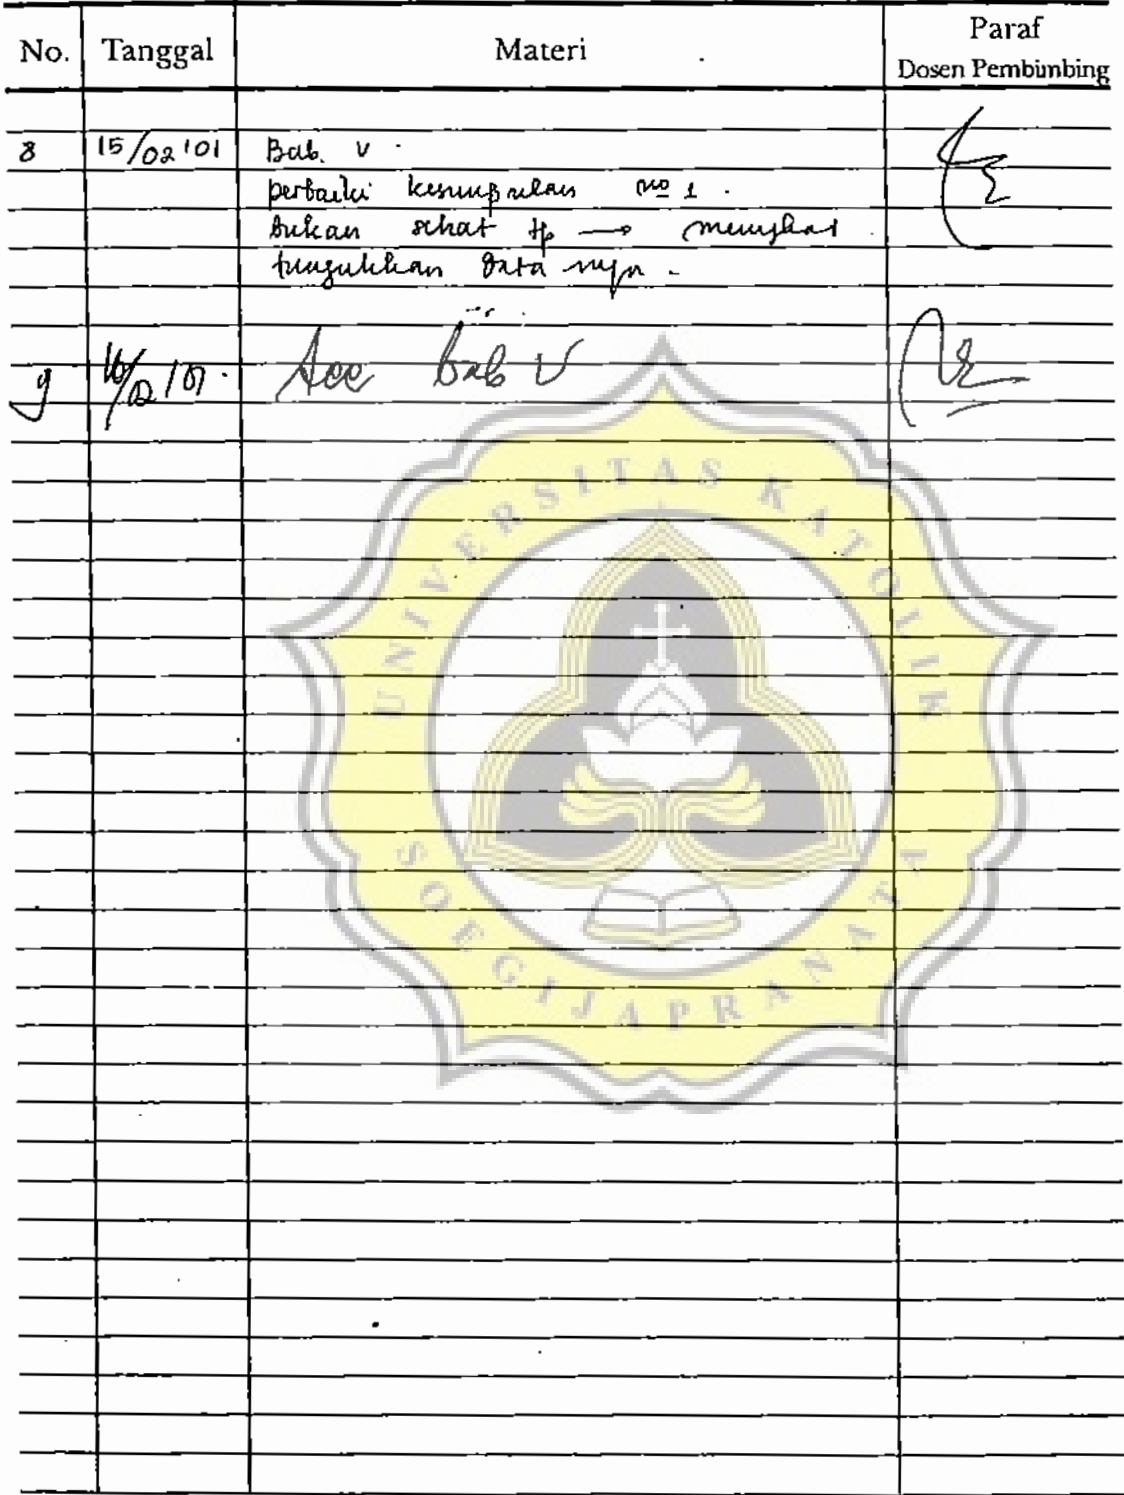 No. Tanggal Materi Paraf
Dosen Pembimbing
8 15/02 '01 Bab. V
perbaiki kesimpulan no 1.
bukan sehat tp →
data nya.
9 16/02/01. Acc bab V
UNIVERSITAS KATOLIK
SOEGIJAPRANATA